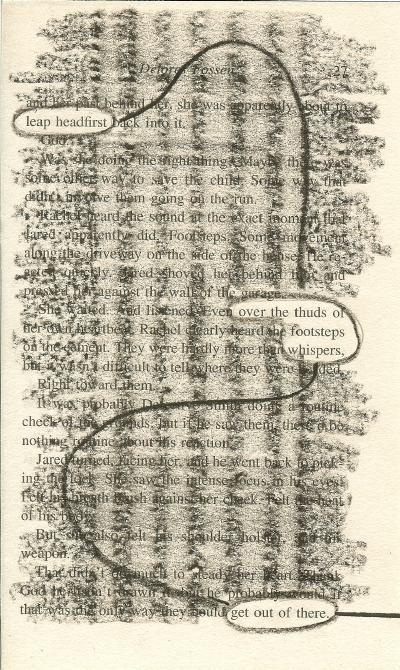 Delores Fossen 27
and her past behind her, she was apparently about to
leap headfirst back into it.
God.
Was she doing the right thing? Maybe there was
some other way to save the child. Some way that
didn't involve them going on the run.
Rachel heard the sound at the exact moment that
Jared apparently did. Footsteps. Some movement
along the driveway on the side of the house. He re-
acted quickly. Jared shoved her behind him and
pressed her against the wall of the garage.
She waited. And listened. Even over the thuds of
her own heartbeat, Rachel clearly heard the footsteps
on the cement. They were hardly more than whispers,
but it wasn't difficult to tell where they were headed.
Right toward them.
It was probably Detective Smith doing a routine
check of the grounds, but if he saw them, there'd be
nothing routine about his reaction.
Jared turned, facing her, and he went back to pick-
ing the lock. She saw the intense focus in his eyes.
Felt his breath brush against her cheek. Felt the heat
of his body.
But she also felt his shoulder holster, and his
weapon.
That didn't do much to steady her heart.
God he hadn't drawn it but he probably would if
that was the only way they could get out of there.